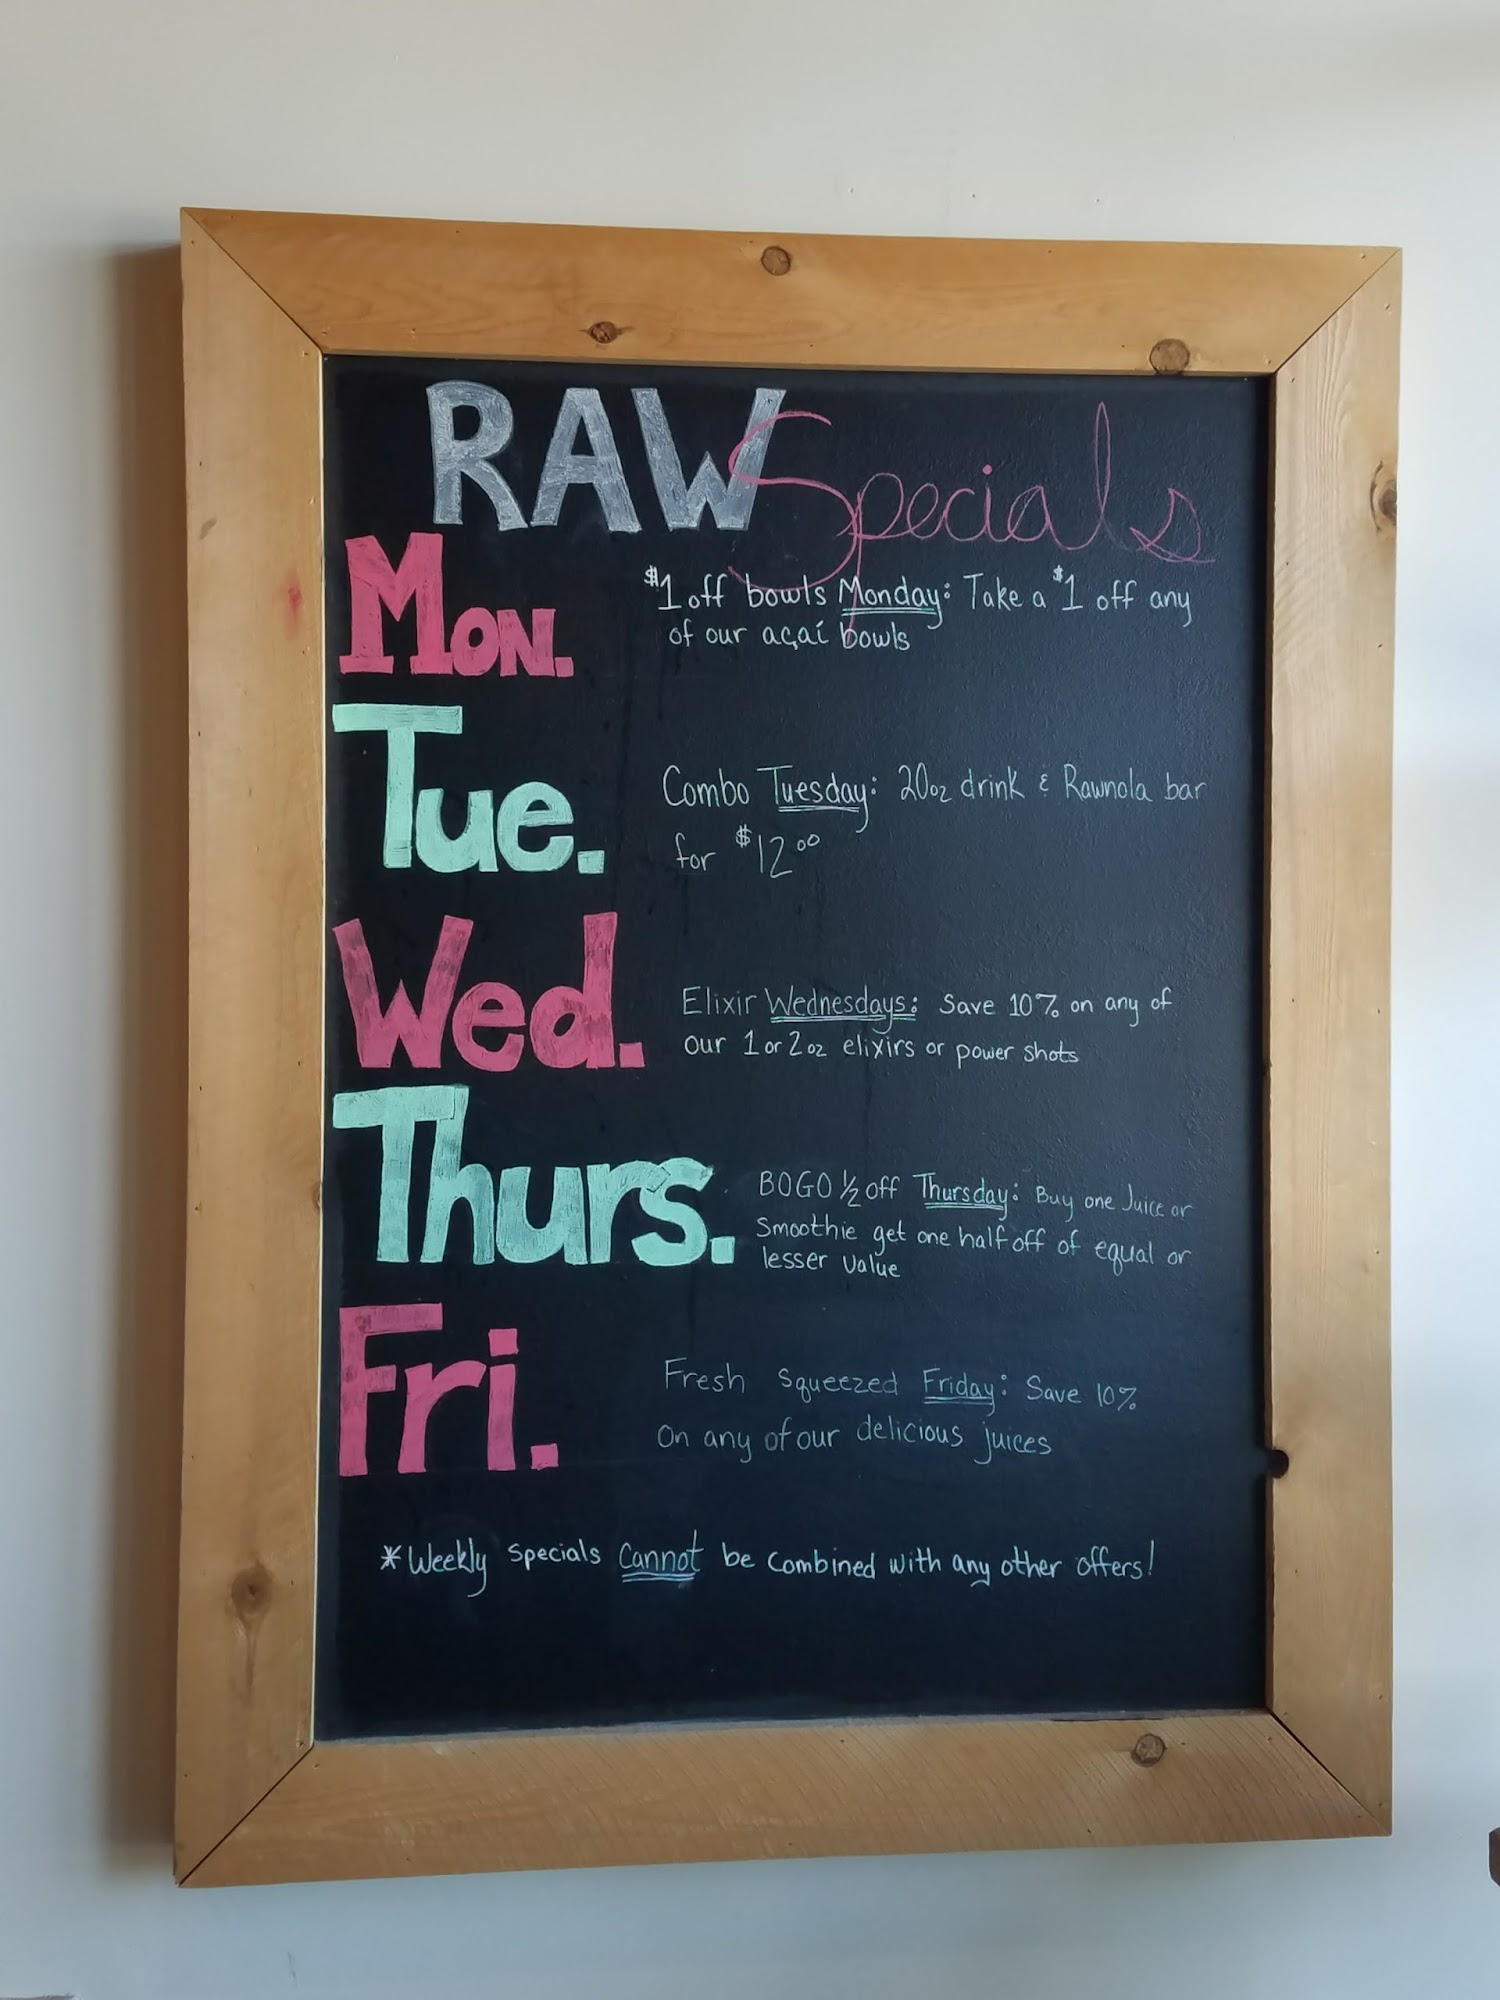 RAW Specials
Mon.
$1 off bowls Monday: Take a $1 off any
of our açaí bowls
Tue.
Combo Tuesday: 20oz drink & Rawnola bar
for $12.00
Wed.
Elixir Wednesdays: Save 10% on any of
our 1 or 2 oz elixirs or power shots
Thurs.
BOGO ½ off Thursday: Buy one Juice or
Smoothie get one half off of equal or
lesser value
Fri.
Fresh Squeezed Friday: Save 10%
on any of our delicious juices
*Weekly Specials Cannot be combined with any other offers!